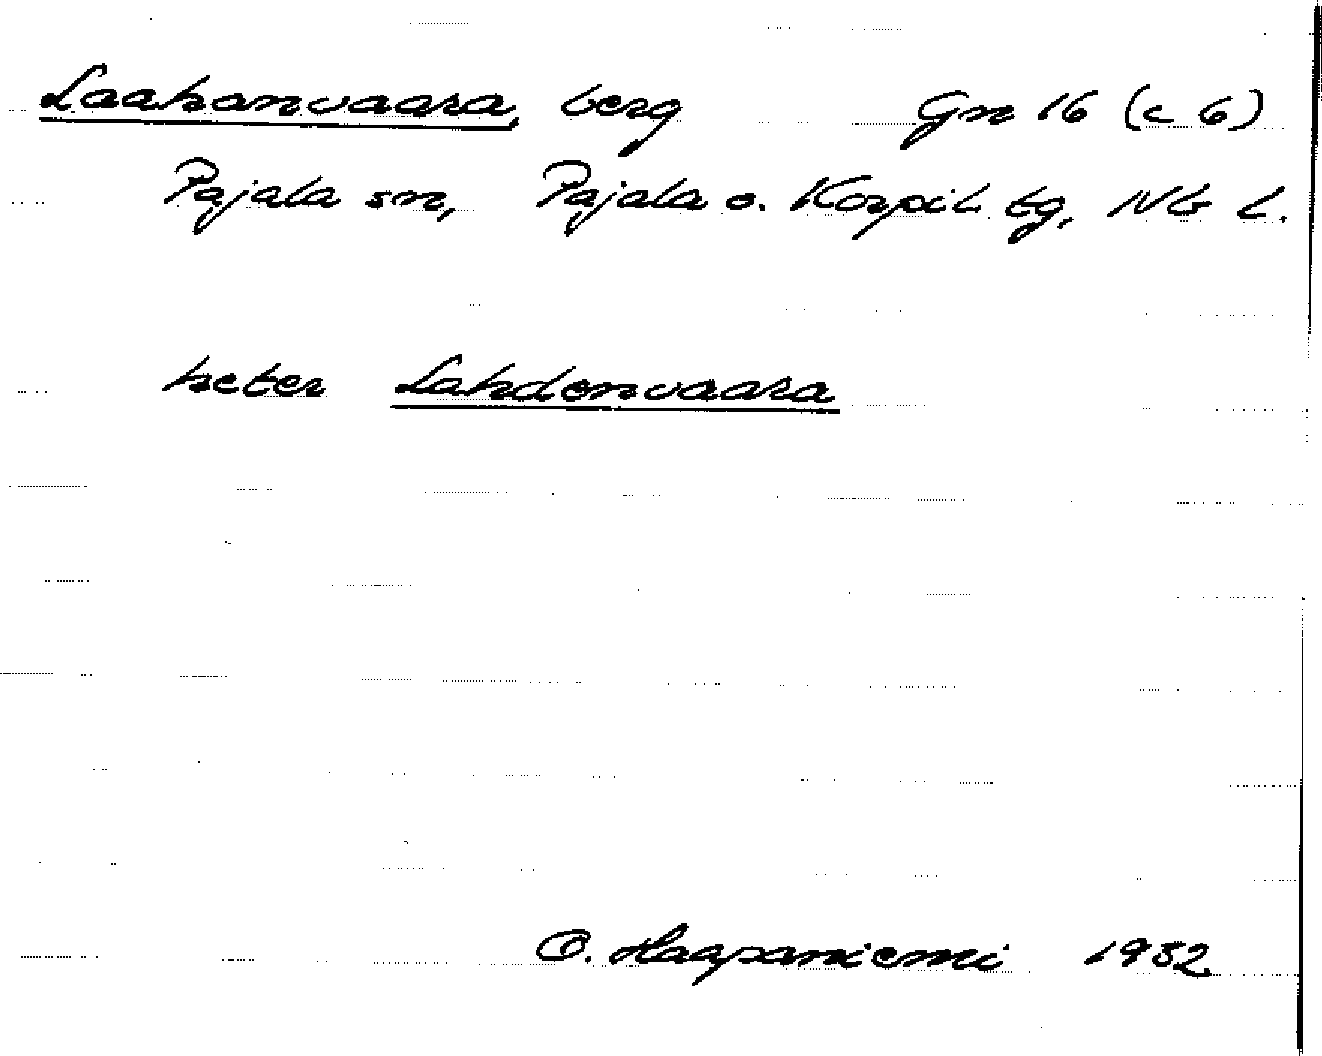 Laahanvaara, berg Gn 16 (c 6)
Pajala sn, Pajala o. Korpil. tg, Nb l.
heter Lahdenvaara
O. Haapaniemi 1932